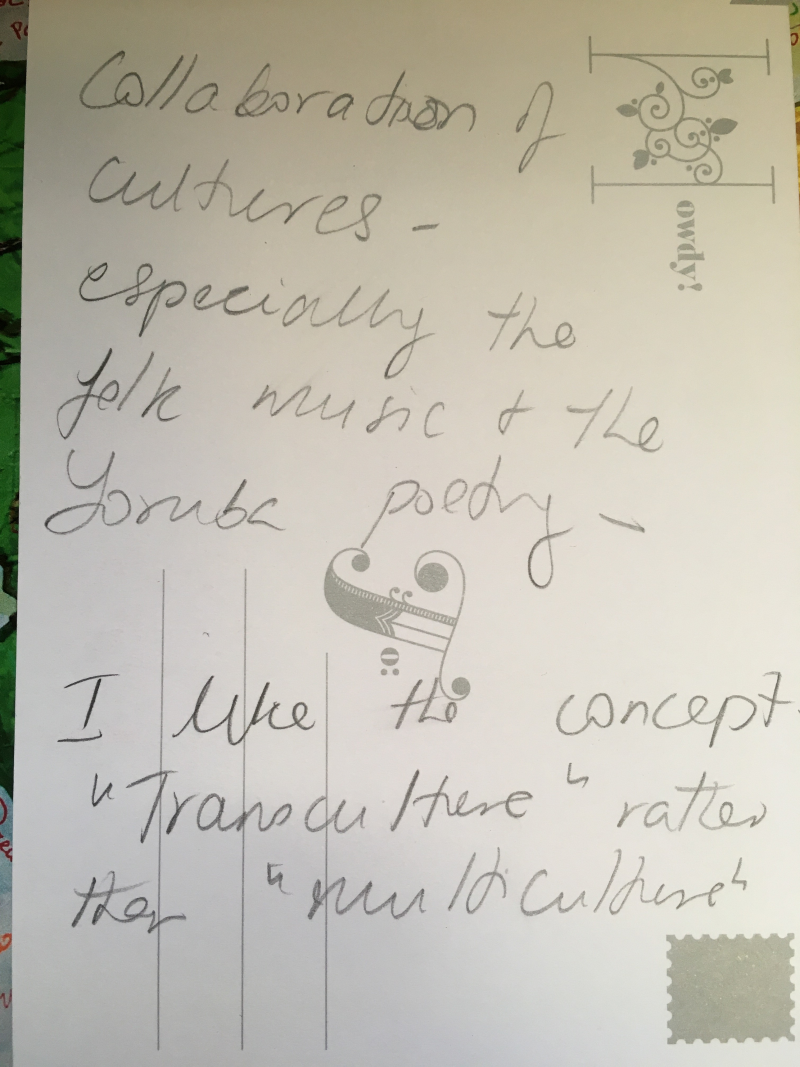 Collaboration of
cultures -
especially the
folk music & the
Yoruba poetry -
I like the concept
"Transculture" rather
than "multiculture"
Howdy!
To: